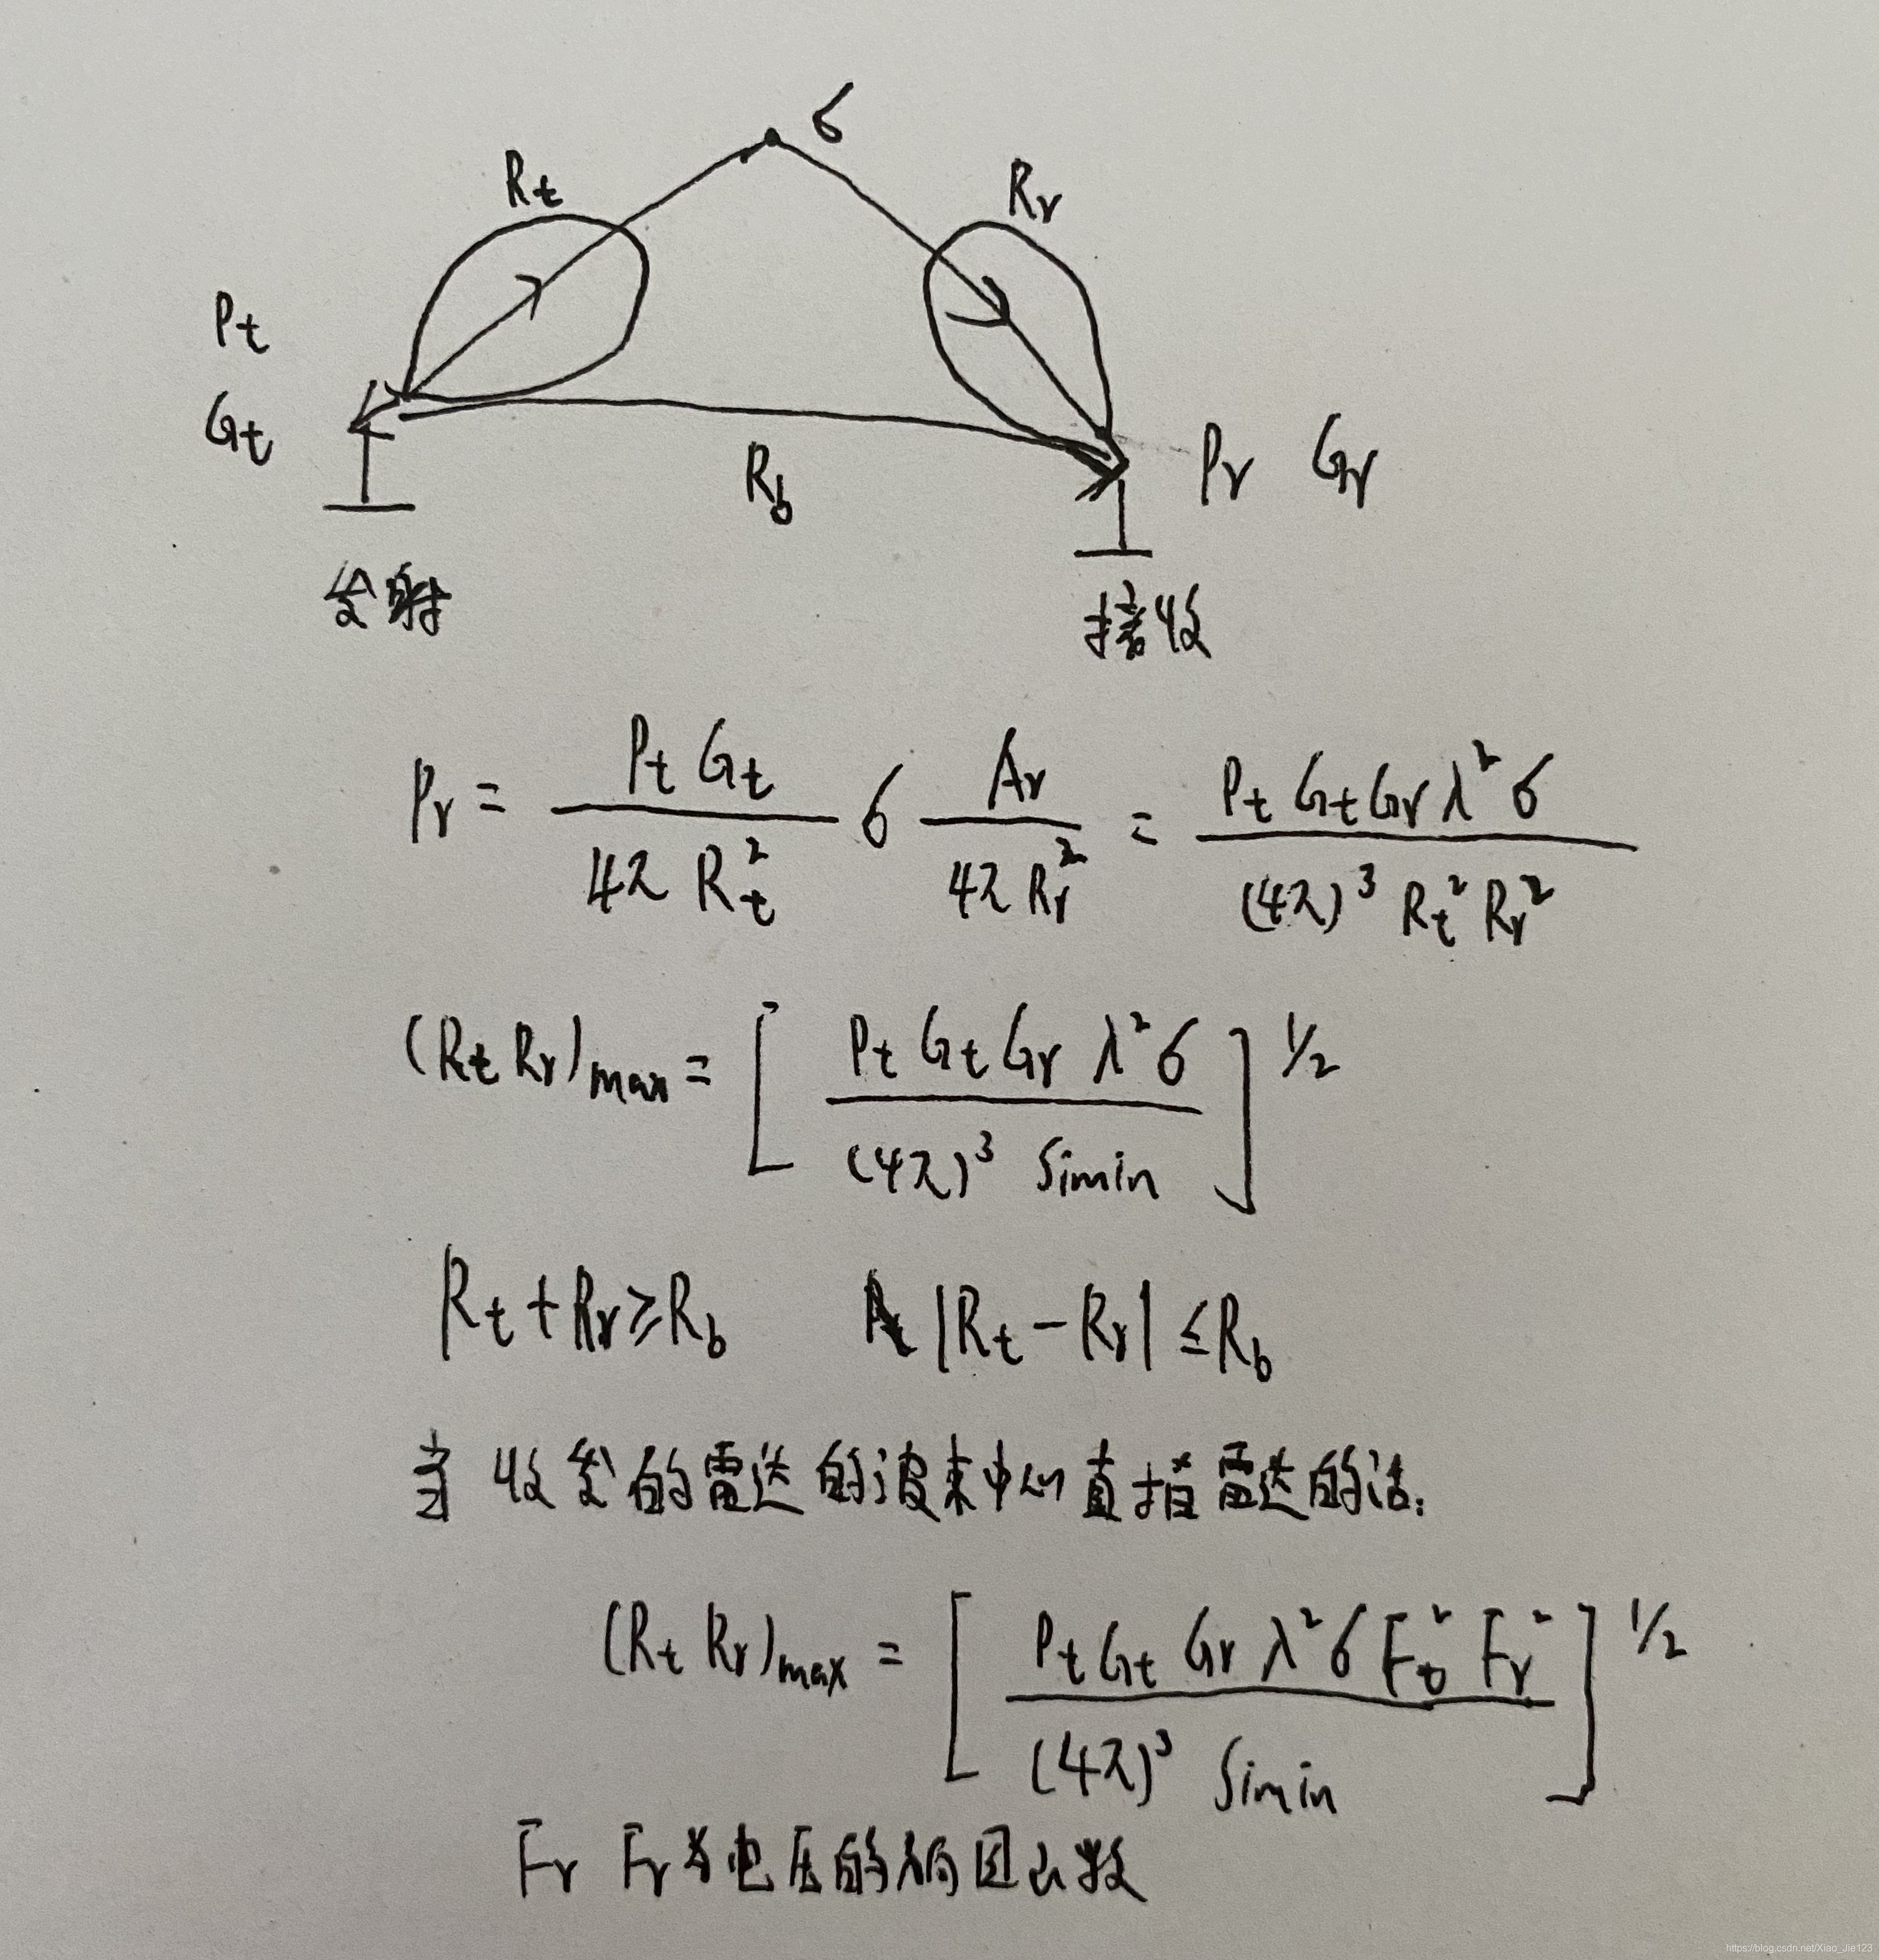 σ
Rt
Rr
Pt
Gt
Rb
Pr Gr
发射
接收
Pr = \frac{Pt Gt}{4π Rt²} σ \frac{Ar}{4π Rr²} = \frac{Pt Gt Gr λ² σ}{(4π)³ Rt² Rr²}
(Rt Rr)max = [\frac{Pt Gt Gr λ² σ}{(4π)³ Simin}]^{1/2}
Rt + Rr ≥ Rb |Rt − Rr| ≤ Rb
当收发的雷达的波束中心直指雷达的话:
(Rt Rr)max = [\frac{Pt Gt Gr λ² σ Ft² Fr²}{(4π)³ Simin}]^{1/2}
Fr Fr为电压的 图函数
https://blog.csdn.net/Xiao_Jie123